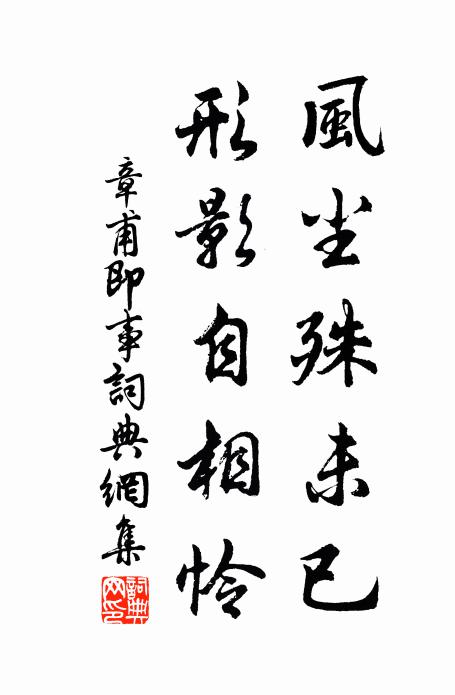 風尘殊未已
形影自相怜
章甫即事詞典網集
詞典网印